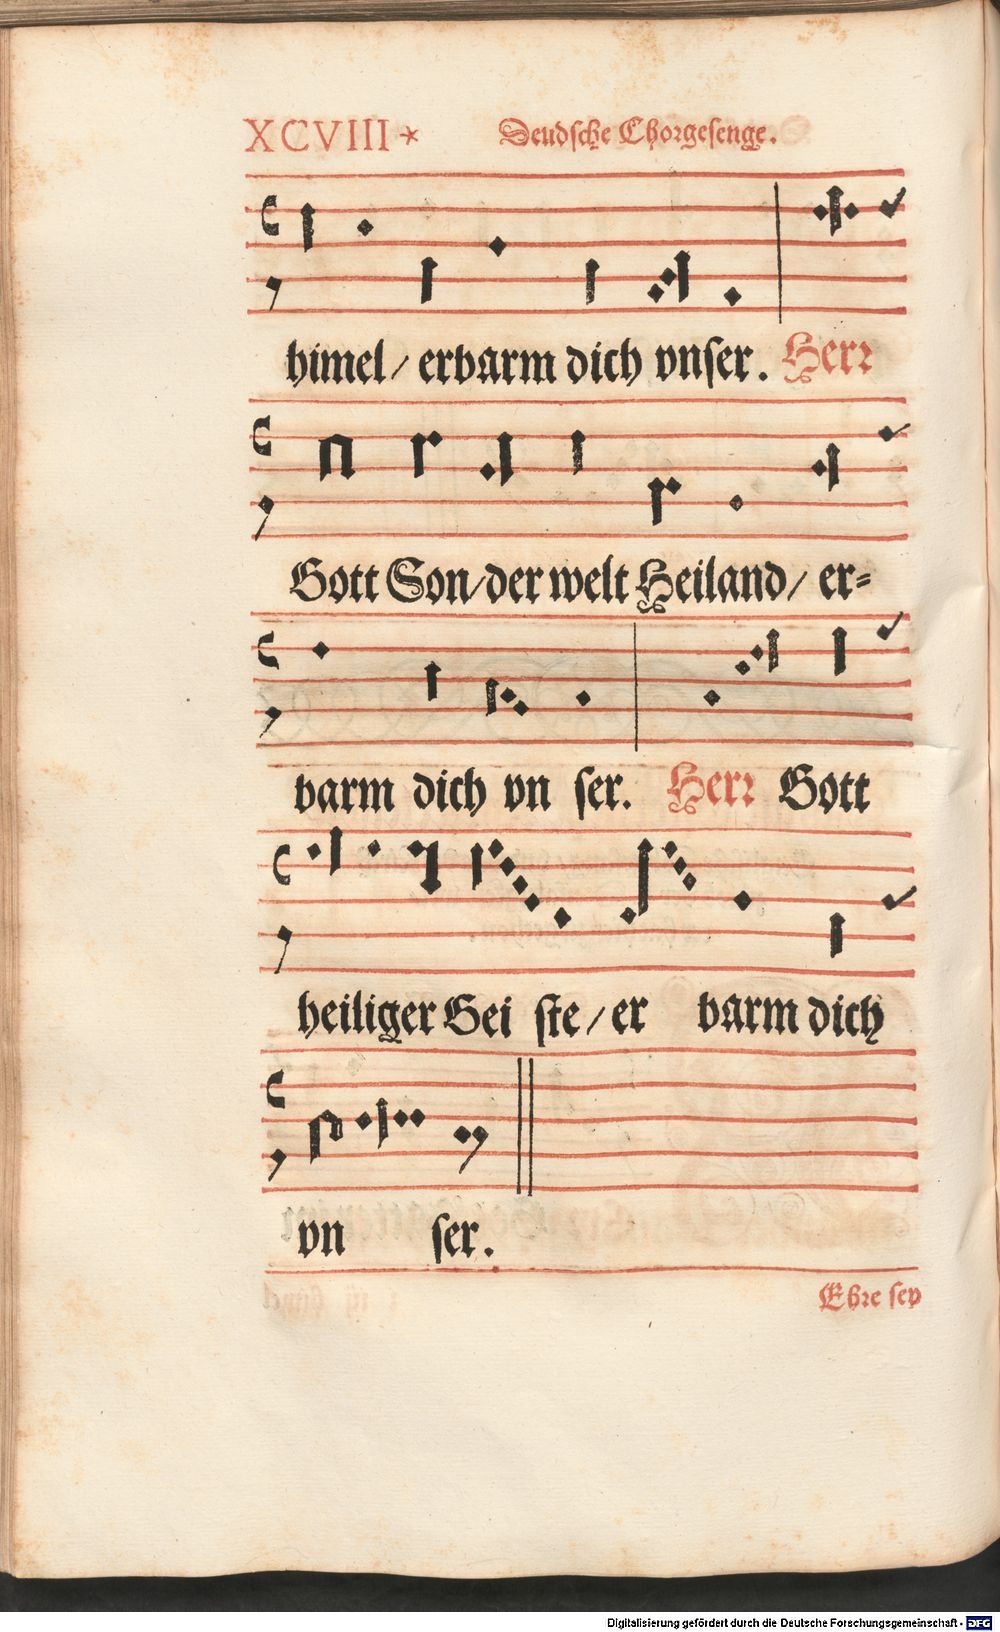 XCVIII * Deudsche Chorgesenge.
himel / erbarm dich vnser. Herr
Gott Son/der welt Heiland/ er=
barm dich vn ser. Herr Gott
heiliger Gei ste/er barm dich
vn ser.
Ehre sey
Digitalisierung gefördert durch die Deutsche Forschungsgemeinschaft - DFG